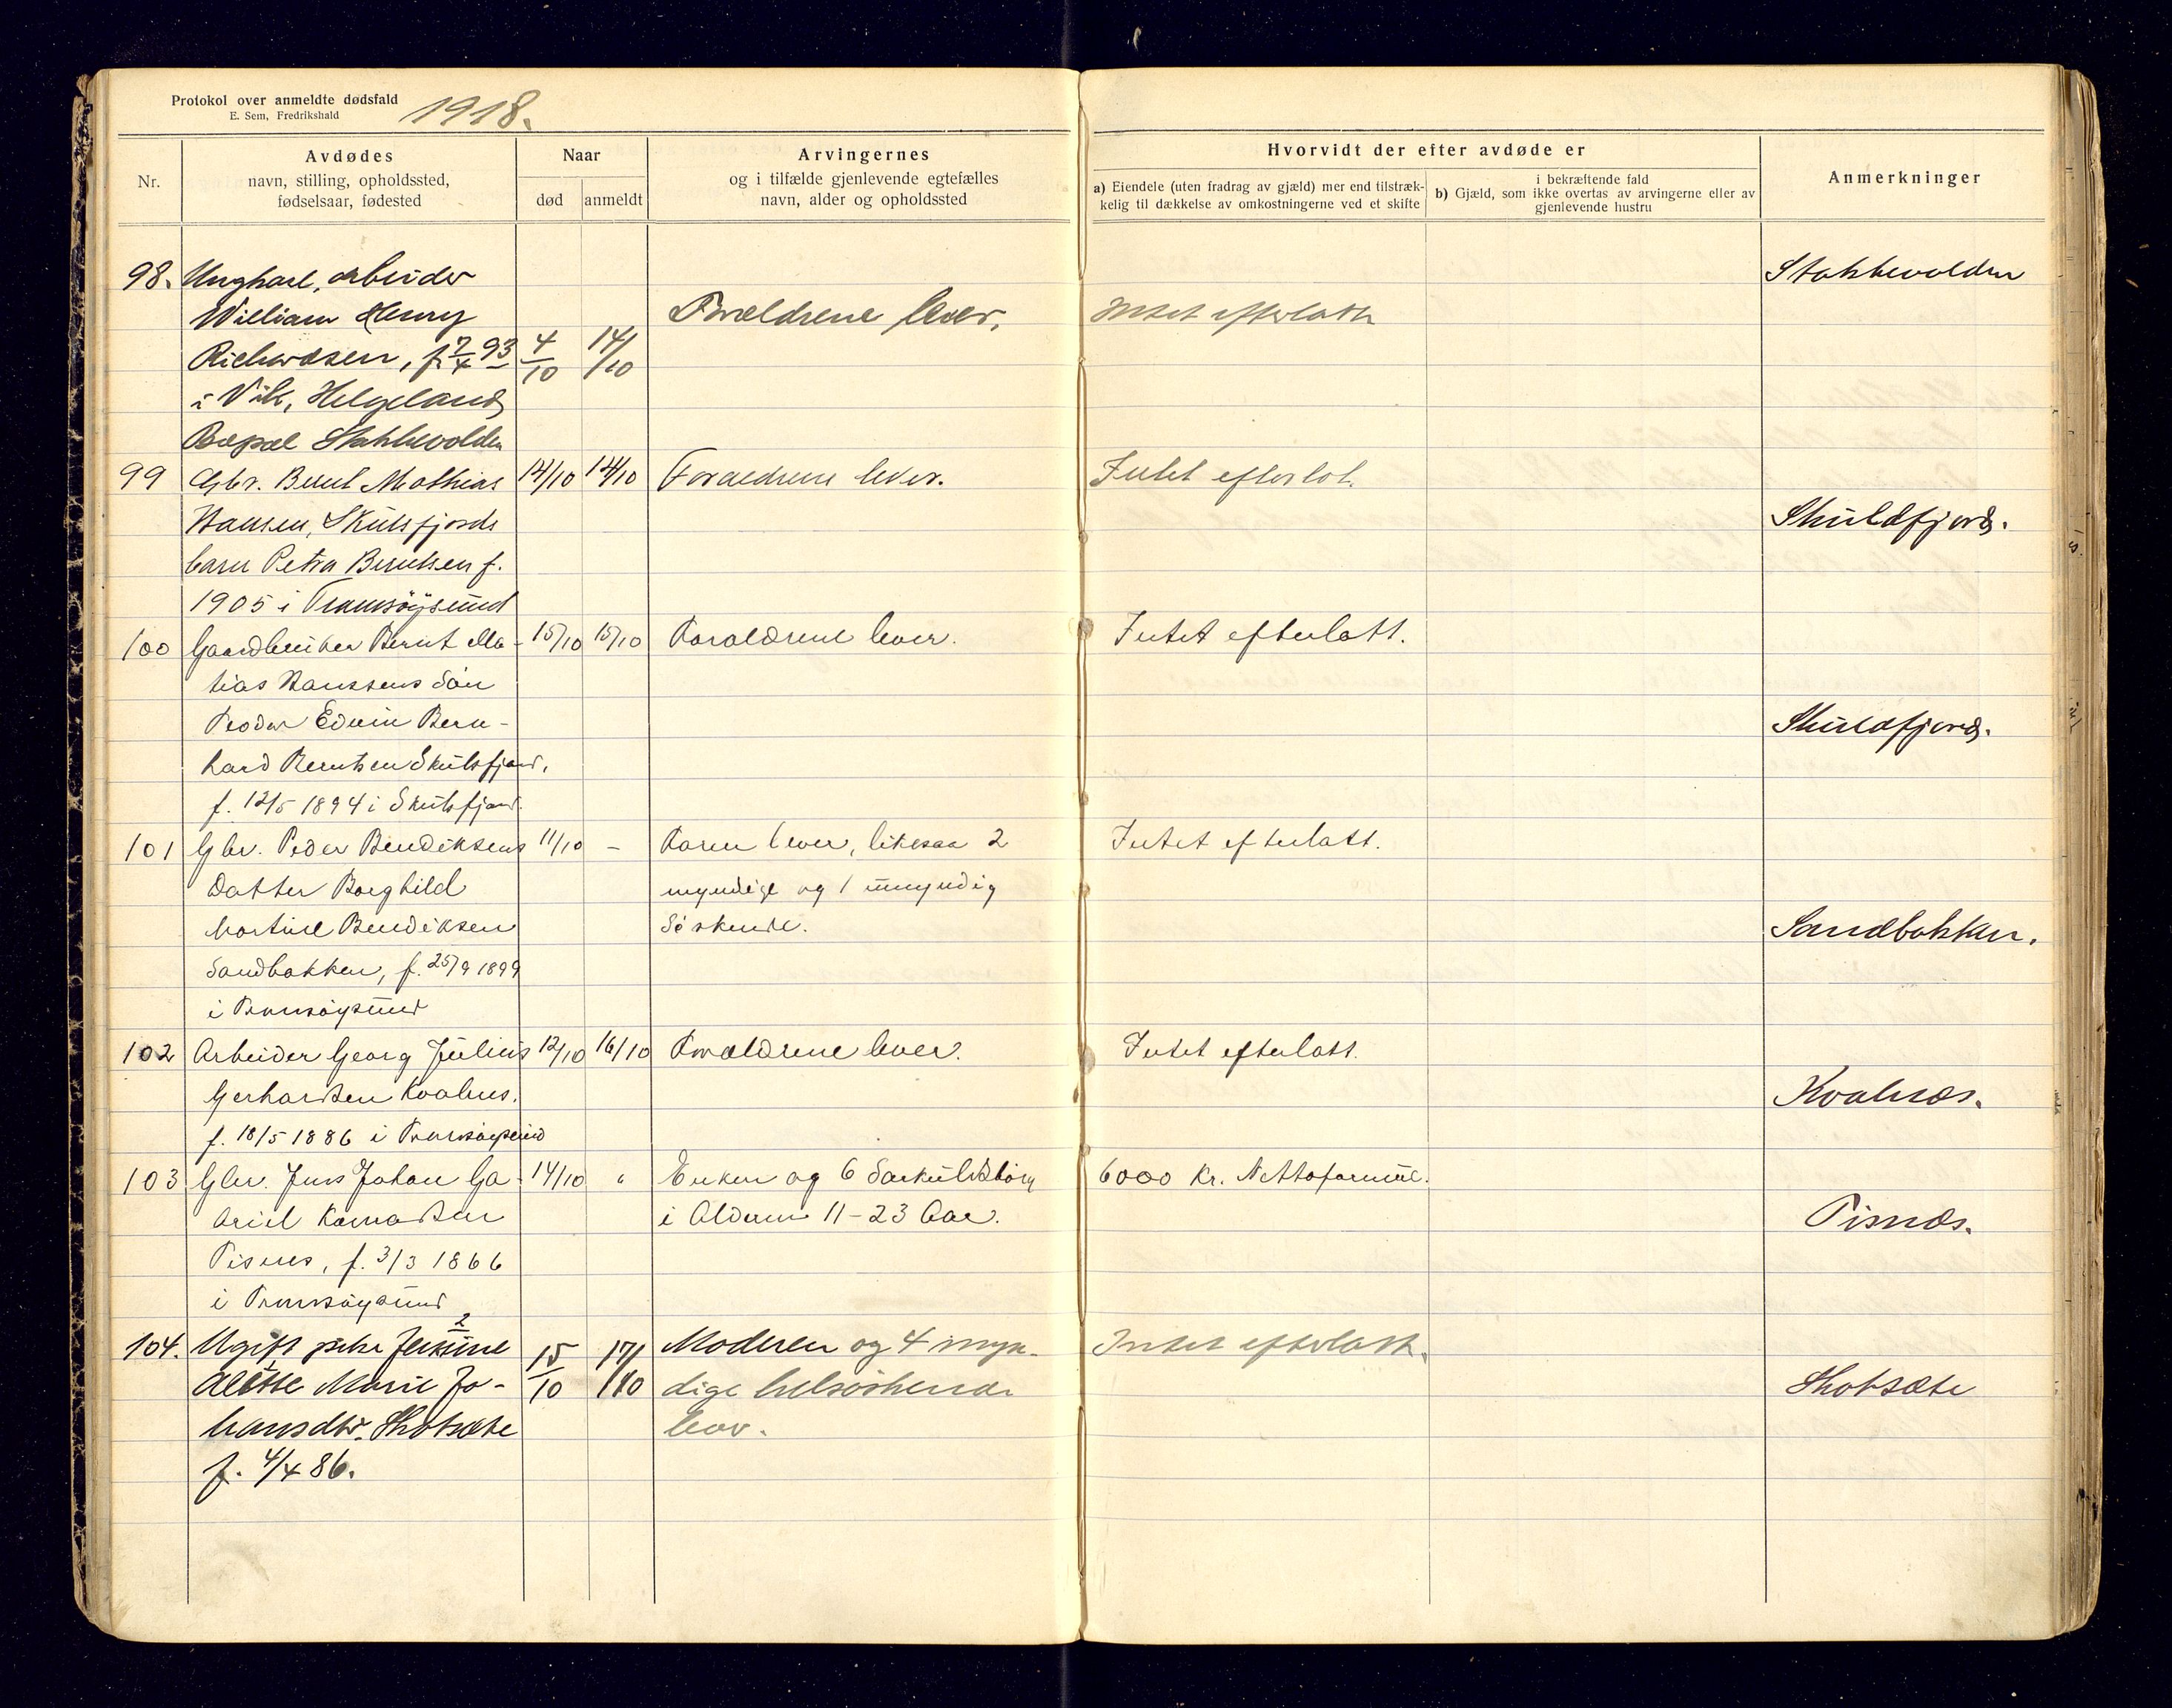 Protokol over anmeldte dødsfald
E. Sem, Fredrikshald
1918.
Nr.
Avdødes
navn, stilling, opholdssted,
fødselsaar, fødested
Naar
død
anmeldt
Arvingernes
og i tilfælde gjenlevende egtefælles
navn, alder og opholdssted
Hvorvidt der efter avdøde er
a) Eiendele (uten fradrag av gjæld) mer end tilstræk-
kelig til dækkelse av omkostningerne ved et skifte
i bekræftende fald
b) Gjæld, som ikke overtas av arvingerne eller av
gjenlevende hustru
Anmerkninger
98. Ungkarl, arbeider
William Henry
Richardsen, f. 7/4 93
i Vik, Helgeland,
Bopæl Stakkevolden
4/10 14/10
Forældrene lever.
Intet efterlatt
Stakkevolden
99 Gbr. Bernt Mathias
Hansen, Skulsfjords
barn Petra Berntsen f.
1905 i Tromsøysund
12/10 14/10
Forældrene lever.
Intet efterlat.
Skuldfjord.
100 Gaardbruker Bernt Ma-
tias Hanssens Søn
Peder Edvin Bern-
hard Berntsen Skulsfjord,
f. 12/5 1894 i Skulsfjord.
15/10 15/10
Forældrene lever.
Intet efterlatt.
Skuldfjord.
101 Gbr. Peder Bendiksens
Datter Borghild
Martine Bendiksen
Sandbakken, f. 25/9 1899
i Tromsøysund
11/10 -
Faren lever, likesaa 2
myndige og 1 umyndig
Søskende.
Intet efterlatt.
Sandbakken.
102 Arbeider Georg Julius
Gerhardsen Kvalnes.
f. 18/5 1886 i Tromsøysund
12/10 16/10
Forældrene lever.
Intet efterlatt.
Kvalnæs.
103 Gbr. Jens Johan Ga-
briel
Pisnes, f. 3/3 1866
i Tromsøysund
14/10 "
Enken og 6 Særkuldsbørn
i Alderen 11-23 Aar.
6000 Kr. Nettoformue.
Pisnæs.
104. Ugift pike
Alette Marie Jo-
hansdtr. Skotsæte
f. 4/4 86.
15/10 17/10
Moderen og 4 myn-
dige helsøskende
lever.
Intet efterlatt.
Skotsæte